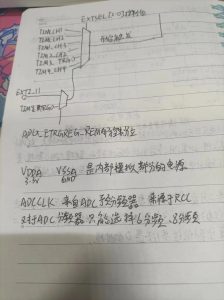 EXTSEL[2:0]控制位
TIM1_CH1
TIM1_CH2
TIM1_CH3
TIM2_CH2
TIM3_TRGO
TIM4_CH4
EXTI_11
TIM8_TRGO
ADC1_ETRGREG_REMAP控制位
VDDA VSSA 是内部模拟部分的电源
3.3V GND
ADCCLK 来自ADC预分频器 来源于RCC
对ADC分频器只能选择6分频、8分频